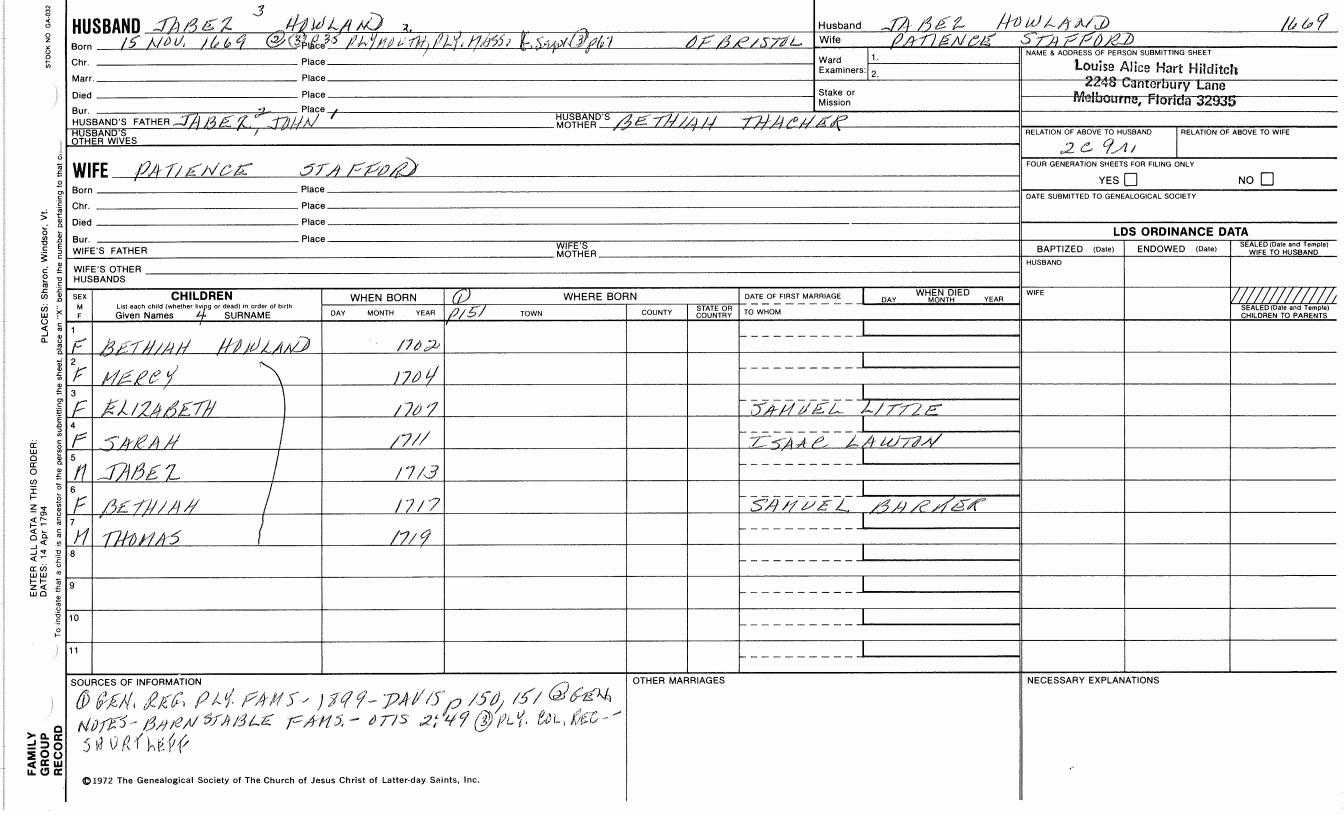 STOCK NO GA-032
PLACES: Sharon, Windsor, Vt.
ENTER ALL DATA IN THIS ORDER:
DATES: 14 Apr 1794
To indicate that a child is an ancestor of the person submitting the sheet, place an "X" behind the number pertaining to that c
FAMILY
GROUP
RECORD
3
HUSBAND JABEZ HOWLAND 2.
Born 15 NOV. 1669 Place PLYMOUTH, PLY. MASS. OF BRISTOL
Chr. Place
Marr. Place
Died Place
Bur. Place
HUSBAND'S FATHER JABEZ 2, JOHN 1
HUSBAND'S MOTHER BETHIAH THACHER
HUSBAND'S OTHER WIVES
WIFE PATIENCE STAFFORD
Born Place
Chr. Place
Died Place
Bur. Place
WIFE'S FATHER
WIFE'S MOTHER
WIFE'S OTHER HUSBANDS
Husband JABEZ HOWLAND 1669
Wife PATIENCE STAFFORD
Ward Examiners: 1.
2.
Stake or Mission
NAME & ADDRESS OF PERSON SUBMITTING SHEET
Louise Alice Hart Hilditch
2248 Canterbury Lane
Melbourne, Florida 32935
RELATION OF ABOVE TO HUSBAND RELATION OF ABOVE TO WIFE
2C 9R
FOUR GENERATION SHEETS FOR FILING ONLY
YES NO
DATE SUBMITTED TO GENEALOGICAL SOCIETY
LDS ORDINANCE DATA
BAPTIZED (Date) ENDOWED (Date) SEALED (Date and Temple) WIFE TO HUSBAND
HUSBAND
WIFE
SEALED (Date and Temple) CHILDREN TO PARENTS
SEX M F
CHILDREN
List each child (whether living or dead) in order of birth
Given Names 4 SURNAME
WHEN BORN
DAY MONTH YEAR
① P151
WHERE BORN
TOWN COUNTY STATE OR COUNTRY
DATE OF FIRST MARRIAGE
TO WHOM
WHEN DIED
DAY MONTH YEAR
1 F BETHIAH HOWLAND 1702
2 F MERCY 1704
3 F ELIZABETH 1707 SAMUEL LITTLE
4 F SARAH 1711 ISAAC LAWTON
5 M JABEZ 1713
6 F BETHIAH 1717 SAMUEL BARKER
7 M THOMAS 1719
8
9
10
11
SOURCES OF INFORMATION
① GEN. REG. PLY. FAMS - 1899 - DAVIS p 150, 151 ② GEN.
NOTES - BARNSTABLE FAMS. - OTIS 2:49 ③ PLY. COL. REC -
SHURTLEFF
OTHER MARRIAGES
NECESSARY EXPLANATIONS
©1972 The Genealogical Society of The Church of Jesus Christ of Latter-day Saints, Inc.